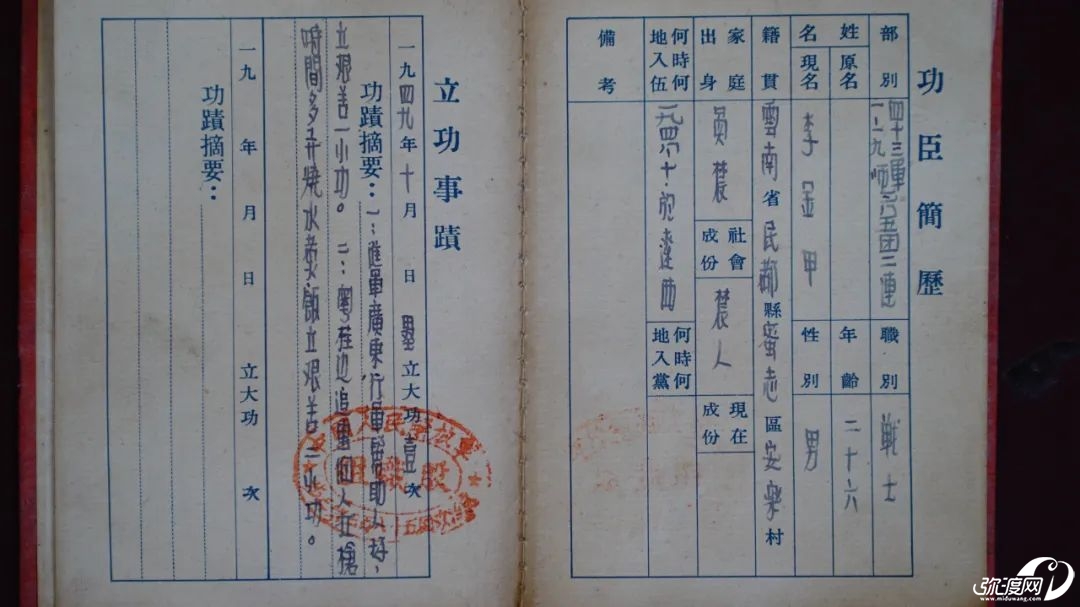 功臣簡歷
部別 四十三軍一二九師三八五团二連 職別 戦士
姓名 原名 年齡 二十六
現名 李金甲 性別 男
籍貫 雲南省民都縣蜜志區安樂村
家庭出身 貧農 社會成份 農人 現在成份
何時何地入伍 一九四八·十·於遼西 何時何地入黨
備考
立功事蹟
一九四九年十月 日 立大功壹次
功蹟摘要：一：進軍廣東行軍帮助人好，
立艰苦一小功。二：粤桂边追擊 人扛槍
時間多并燒水煑飯立艰苦二小功。
一九 年 月 日 立大功 次
功蹟摘要：
弥渡网
www.miduwang.com